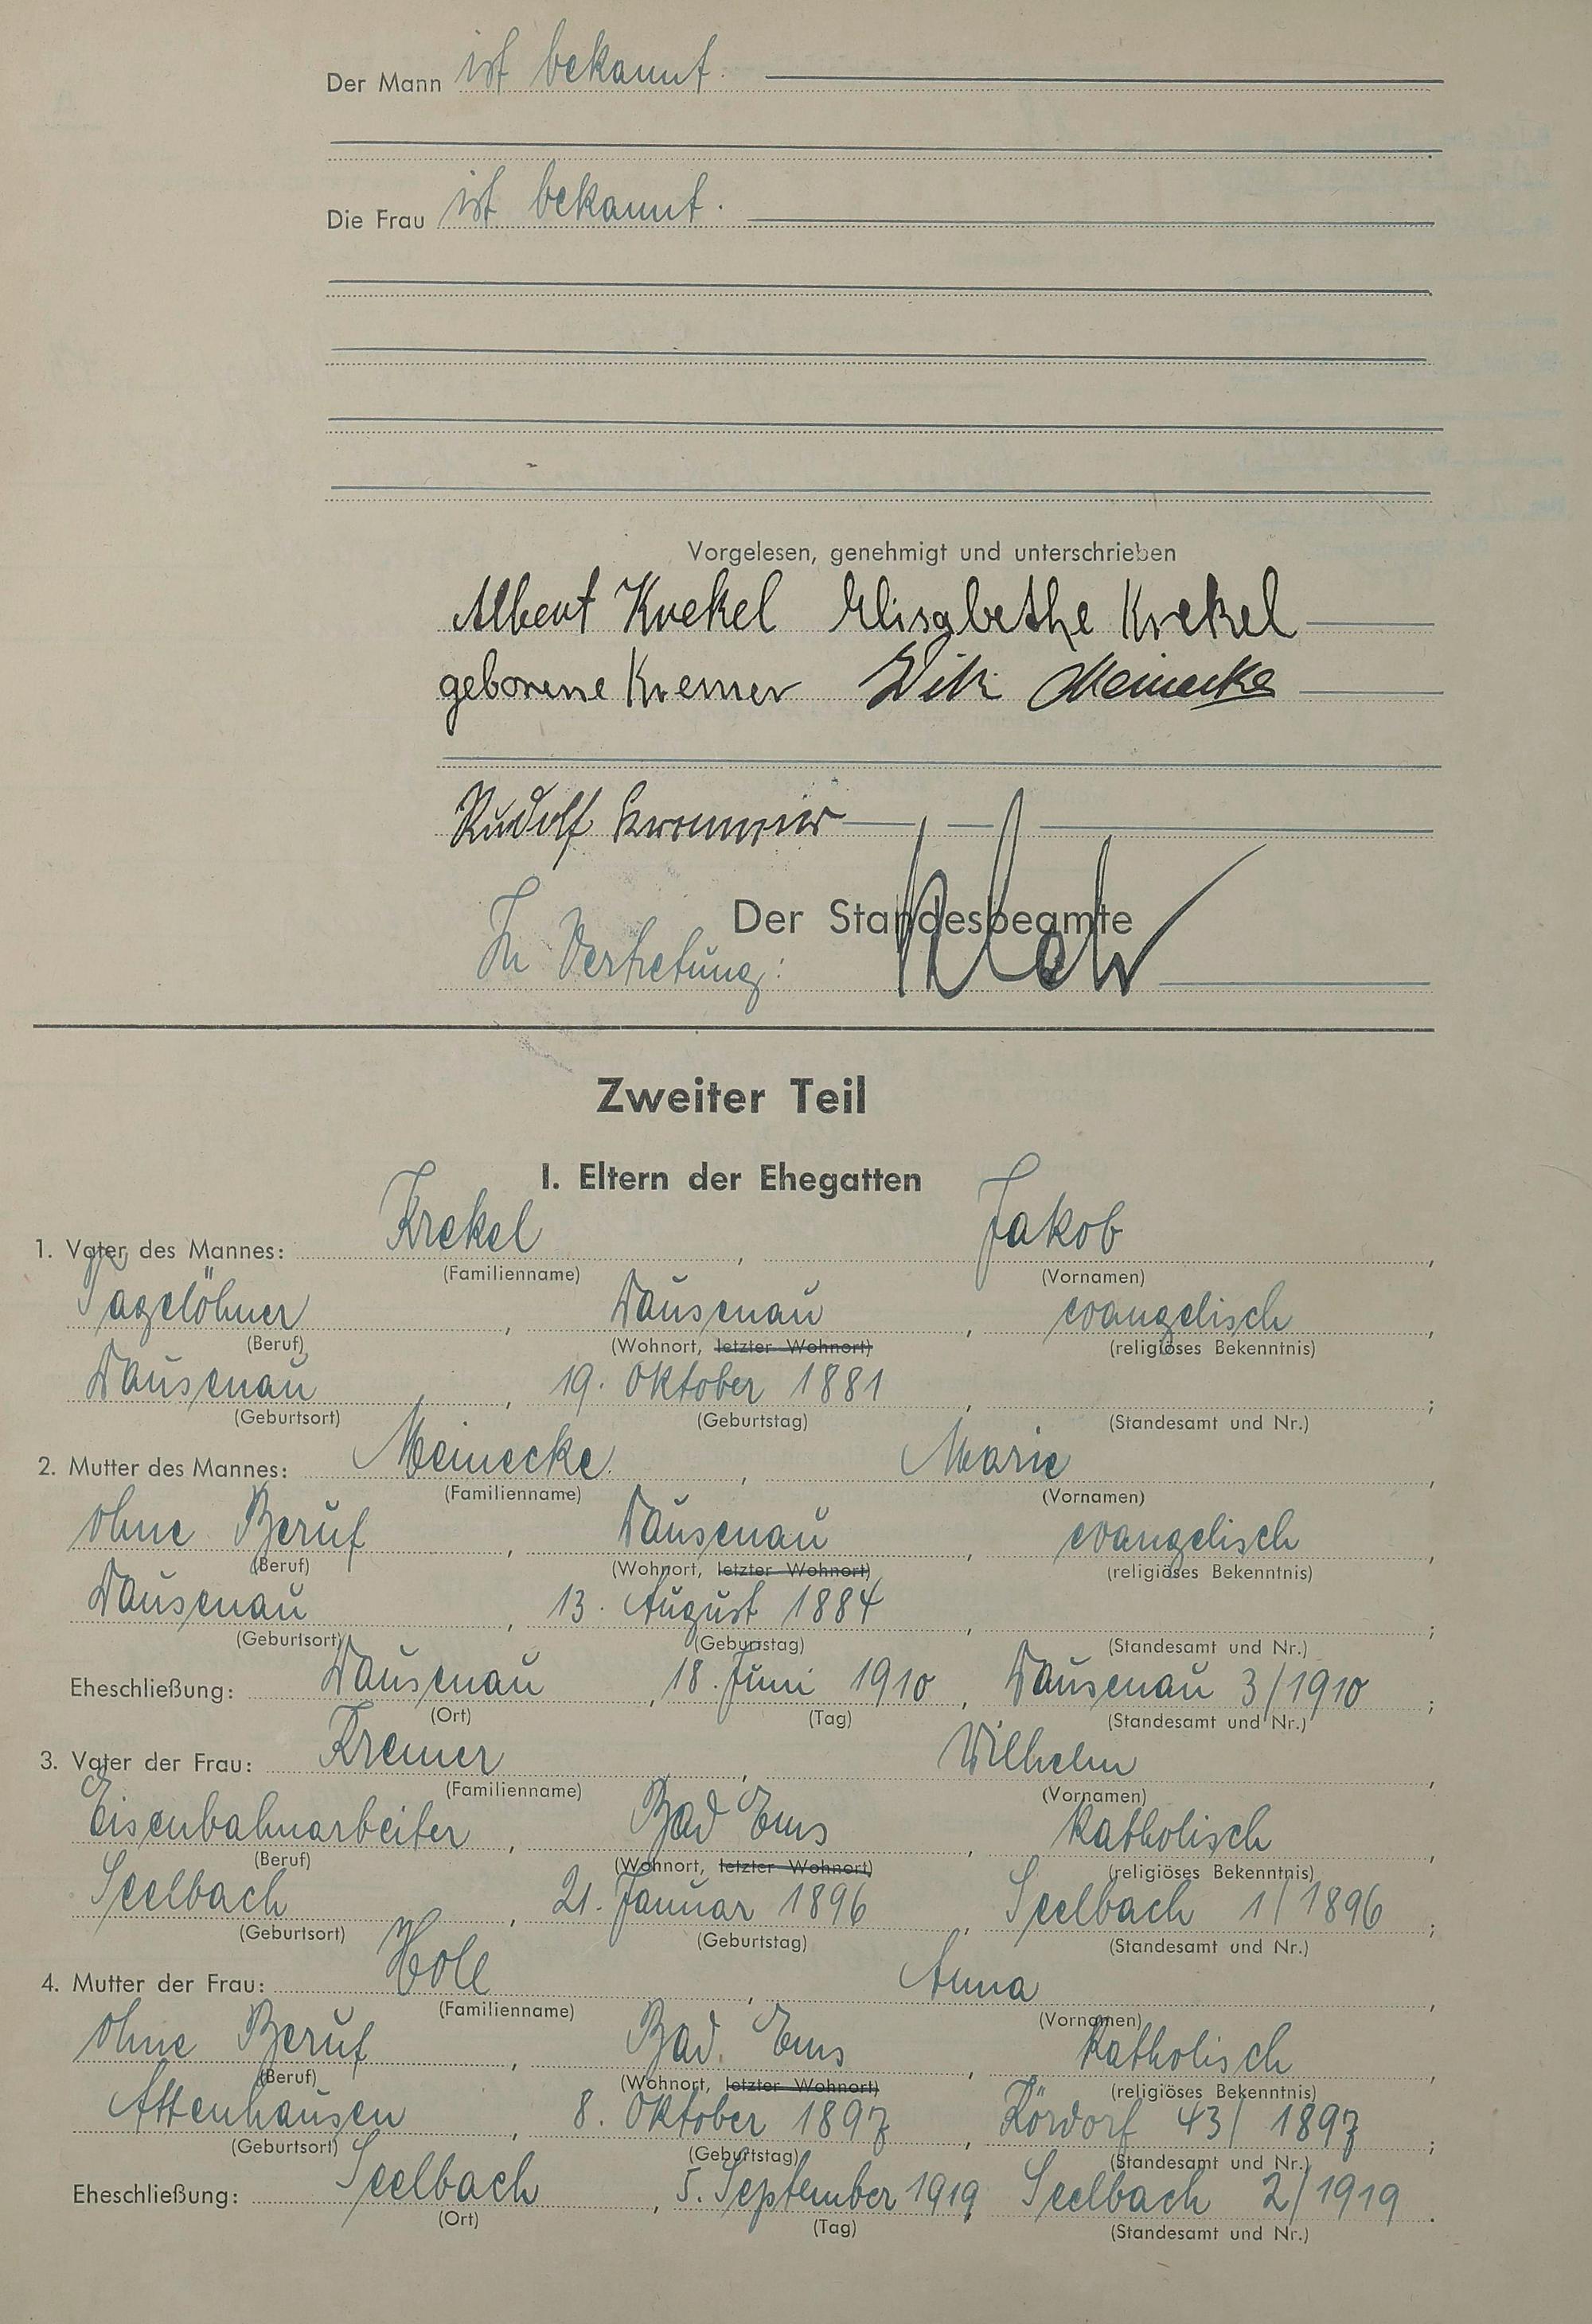 Der Mann ist bekannt.
Die Frau ist bekannt.
Vorgelesen, genehmigt und unterschrieben
Albert Krekel Elisabethe Krekel
geborene Kremer Meinecke
Rudolf
Der Standesbeamte
In Vertretung:
Zweiter Teil
I. Eltern der Ehegatten
1. Vater des Mannes: Krekel, Jakob,
(Familienname) (Vornamen)
Tagelöhner, Dausenau, evangelisch,
(Beruf) (Wohnort, letzter Wohnort) (religiöses Bekenntnis)
Dausenau, 19. Oktober 1881, ;
(Geburtsort) (Geburtstag) (Standesamt und Nr.)
2. Mutter des Mannes: Meinecke, Marie,
(Familienname) (Vornamen)
ohne Beruf, Dausenau, evangelisch,
(Beruf) (Wohnort, letzter Wohnort) (religiöses Bekenntnis)
Dausenau, 13. August 1884, ;
(Geburtsort) (Geburtstag) (Standesamt und Nr.)
Eheschließung: Dausenau, 18. Juni 1910, Dausenau 3/1910;
(Ort) (Tag) (Standesamt und Nr.)
3. Vater der Frau: Kremer, Wilhelm,
(Familienname) (Vornamen)
Eisenbahnarbeiter, Bad Ems, katholisch,
(Beruf) (Wohnort, letzter Wohnort) (religiöses Bekenntnis)
Seelbach, 21. Januar 1896, Seelbach 1/1896;
(Geburtsort) (Geburtstag) (Standesamt und Nr.)
4. Mutter der Frau: Holl, Anna,
(Familienname) (Vornamen)
ohne Beruf, Bad Ems, katholisch,
(Beruf) (Wohnort, letzter Wohnort) (religiöses Bekenntnis)
Attenhausen, 8. Oktober 1897, Kördorf 43/1897;
(Geburtsort) (Geburtstag) (Standesamt und Nr.)
Eheschließung: Seelbach, 5. September 1919, Seelbach 2/1919.
(Ort) (Tag) (Standesamt und Nr.)